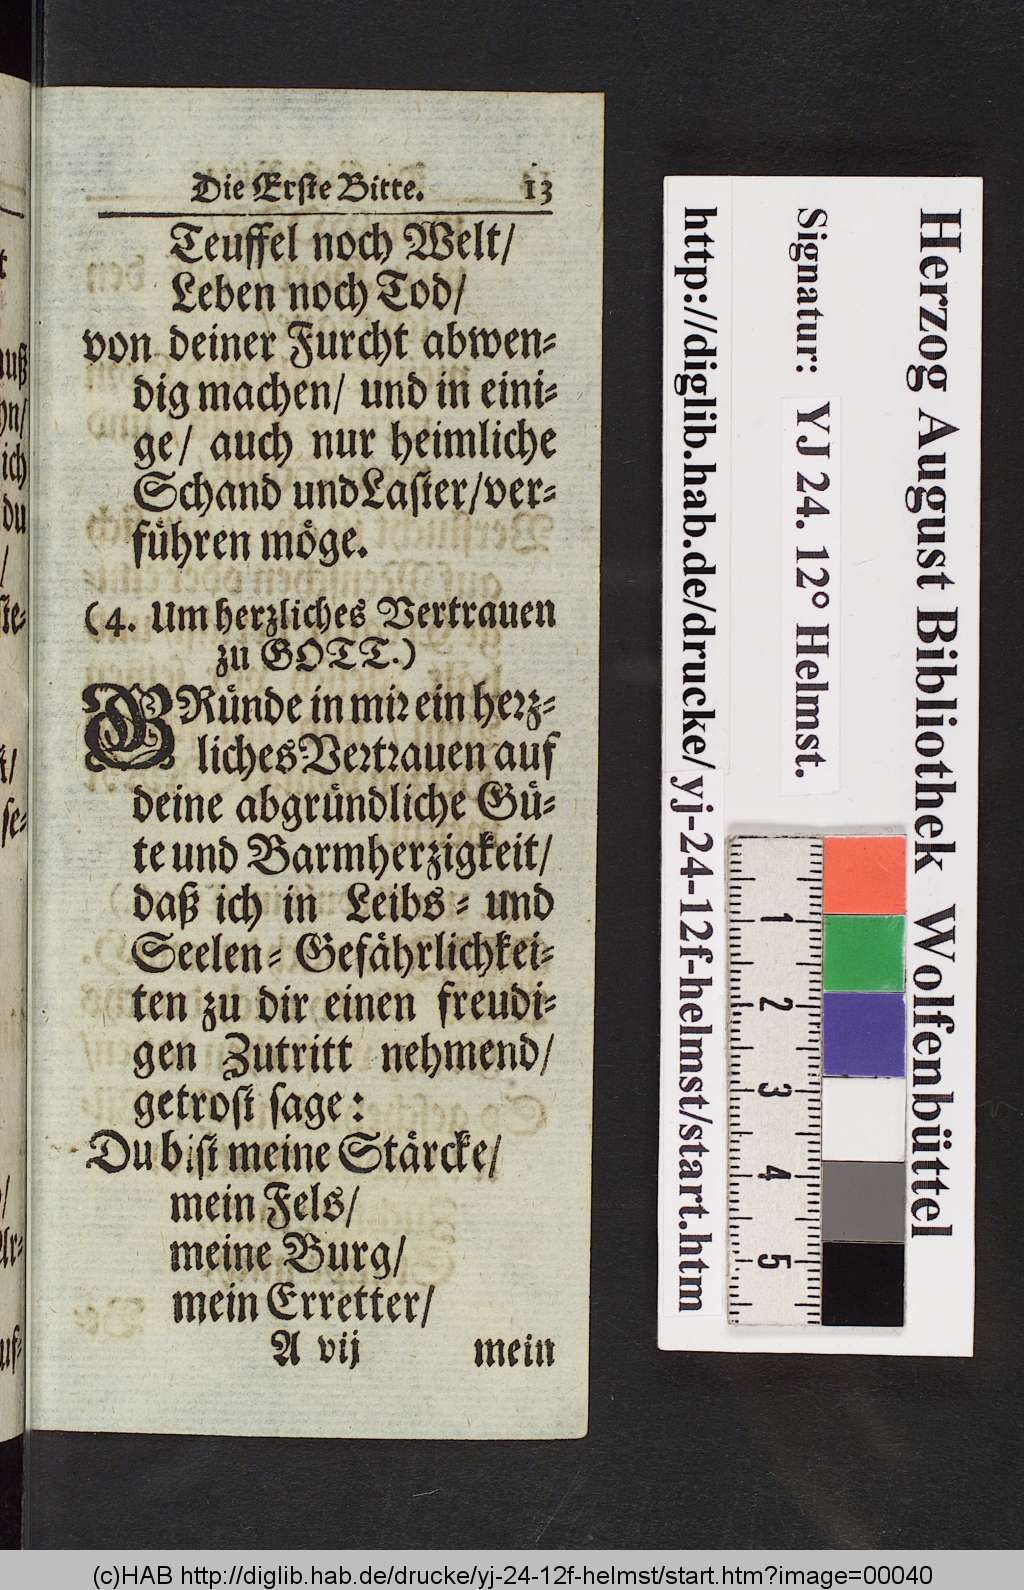 Die Erſte Bitte. 13
Teuffel noch Welt/
Leben noch Tod/
von deiner Furcht abwen⸗
dig machen/ und in eini⸗
ge/ auch nur heimliche
Schand und Laſter/ver⸗
führen möge.
(4. Um herzliches Vertrauen
zu GOTT.)
GRünde in mir ein herz⸗
liches Vertrauen auf
deine abgründliche Gü⸗
te und Barmherzigkeit/
daß ich in Leibs⸗ und
Seelen⸗ Gefährlichkei⸗
ten zu dir einen freudi⸗
gen Zutritt nehmend/
getroſt ſage:
Du biſt meine Stärcke/
mein Fels/
meine Burg/
mein Erretter/
A vij mein
uß
hn/
ich
du
/
ſte⸗
t/
ſe⸗
/
Ar⸗
uſ⸗
Herzog August Bibliothek Wolfenbüttel
Signatur: YJ 24. 12° Helmst.
http://diglib.hab.de/drucke/yj-24-12f-helmst/start.htm
1
2
3
4
5
(c)HAB http://diglib.hab.de/drucke/yj-24-12f-helmst/start.htm?image=00040